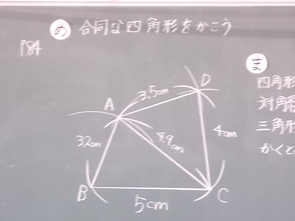 め 合同な四角形をかこう
P84
ま
四角形
対角
三角形
かくと
D
3.5cm
A
3.2cm
4.9cm
4cm
B
5cm
C